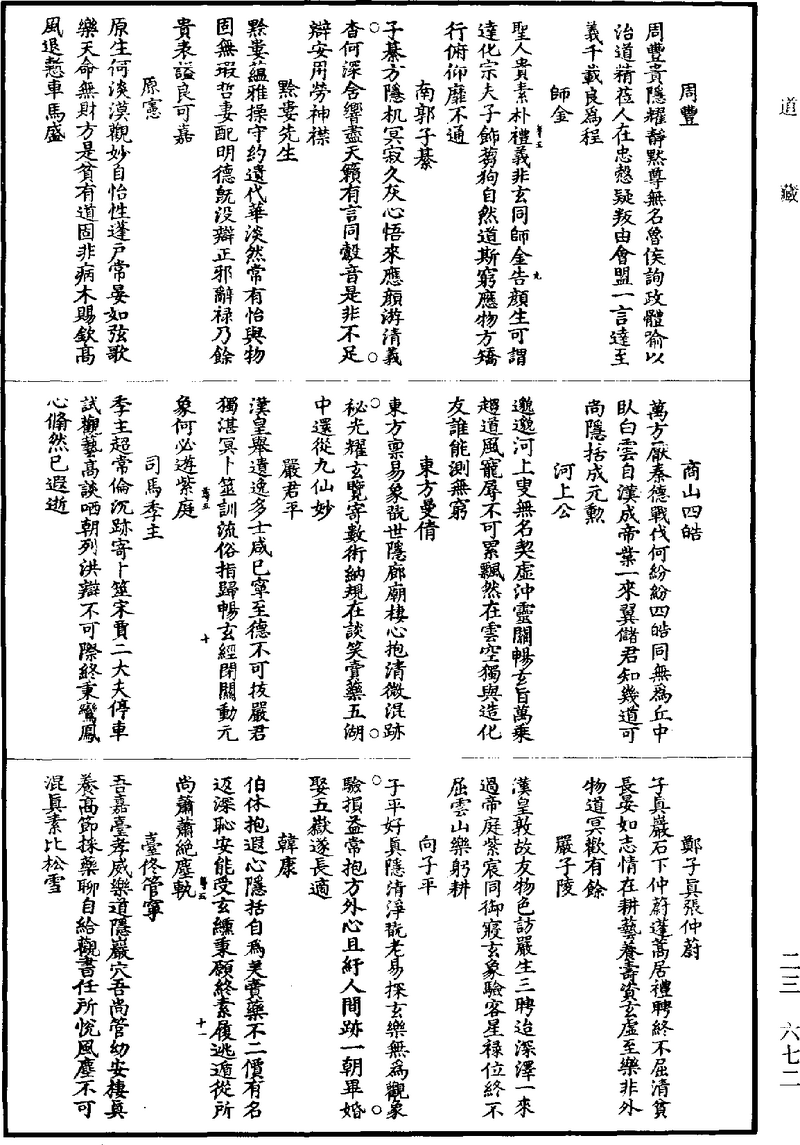 道藏
周豐
周豐貴隱耀靜黙尊無名魯侯詢政體喻以
治道精莅人在忠慤疑叛由會盟一言達至
義千載良爲程
師金
聖人貴素朴禮義非玄同師金告顔生可謂
達化宗夫子飾蒭狗自然道斯窮應物方矯
行俯仰靡不通
南郭子綦
子綦方隱机冥寂久灰心悟來應顔游清義
杳何深含響盡天籟有言同鷇音是非不足
辯安用勞神襟
黔婁先生
黔婁藴雅操守約遺代華淡然常有怡與物
固無瑕哲妻配明德旣没辯正邪辭禄乃餘
貴表謚良可嘉
原憲
原生何淡漠觀妙自怡性蓬戸常晏如弦歌
樂天命無財方是貧有道固非病木賜欽高
風退慙車馬盛
商山四皓
萬方厭秦德戰伐何紛紛四皓同無爲丘中
臥白雲自漢成帝業一來翼儲君知幾道可
尚隱括成元勲
河上公
邈邈河上叟無名契虛沖靈關暢玄旨萬乘
趨道風寵辱不可累飄然在雲空獨與造化
友誰能測無窮
東方曼倩
東方禀易象翫世隱廊廟棲心抱清微混跡
秘光耀玄覽寄數術納規在談笑賣藥五湖
中還從九仙妙
嚴君平
漢皇舉遺逸多士咸已寧至德不可拔嚴君
獨湛冥卜筮訓流俗指歸暢玄經閉關動元
象何必遊紫庭
司馬季主
季主超常倫沉跡寄卜筮宋賈二大夫停車
試觀藝高談哂朝列洪辯不可際終秉鸞鳳
心翛然已遐逝
鄭子眞張仲蔚
子真嚴石下仲蔚蓬蒿居禮聘終不屈清貧
長晏如志情在耕藝養壽資玄虛至樂非外
物道冥歡有餘
嚴子陵
漢皇敦故友物色訪嚴生三聘迨深澤一來
過帝庭紫宸同御寢玄象驗客星禄位終不
屈雲山樂躬耕
向子平
子平好真隱清淨翫老易探玄樂無爲觀象
驗損益常抱方外心且紆人間跡一朝畢婚
娶五嶽遂長適
韓康
伯休抱遐心隱括自爲美賣藥不二價有名
迺深恥安能受玄纁秉願終素履逃遁從所
尚蕭蕭絶塵軌
臺佟管寧
吾嘉臺孝威樂道隱巖穴吾尚管幼安棲眞
養高節採藥聊自給觀書任所悅風塵不可
混眞素比松雪
二三 六七二